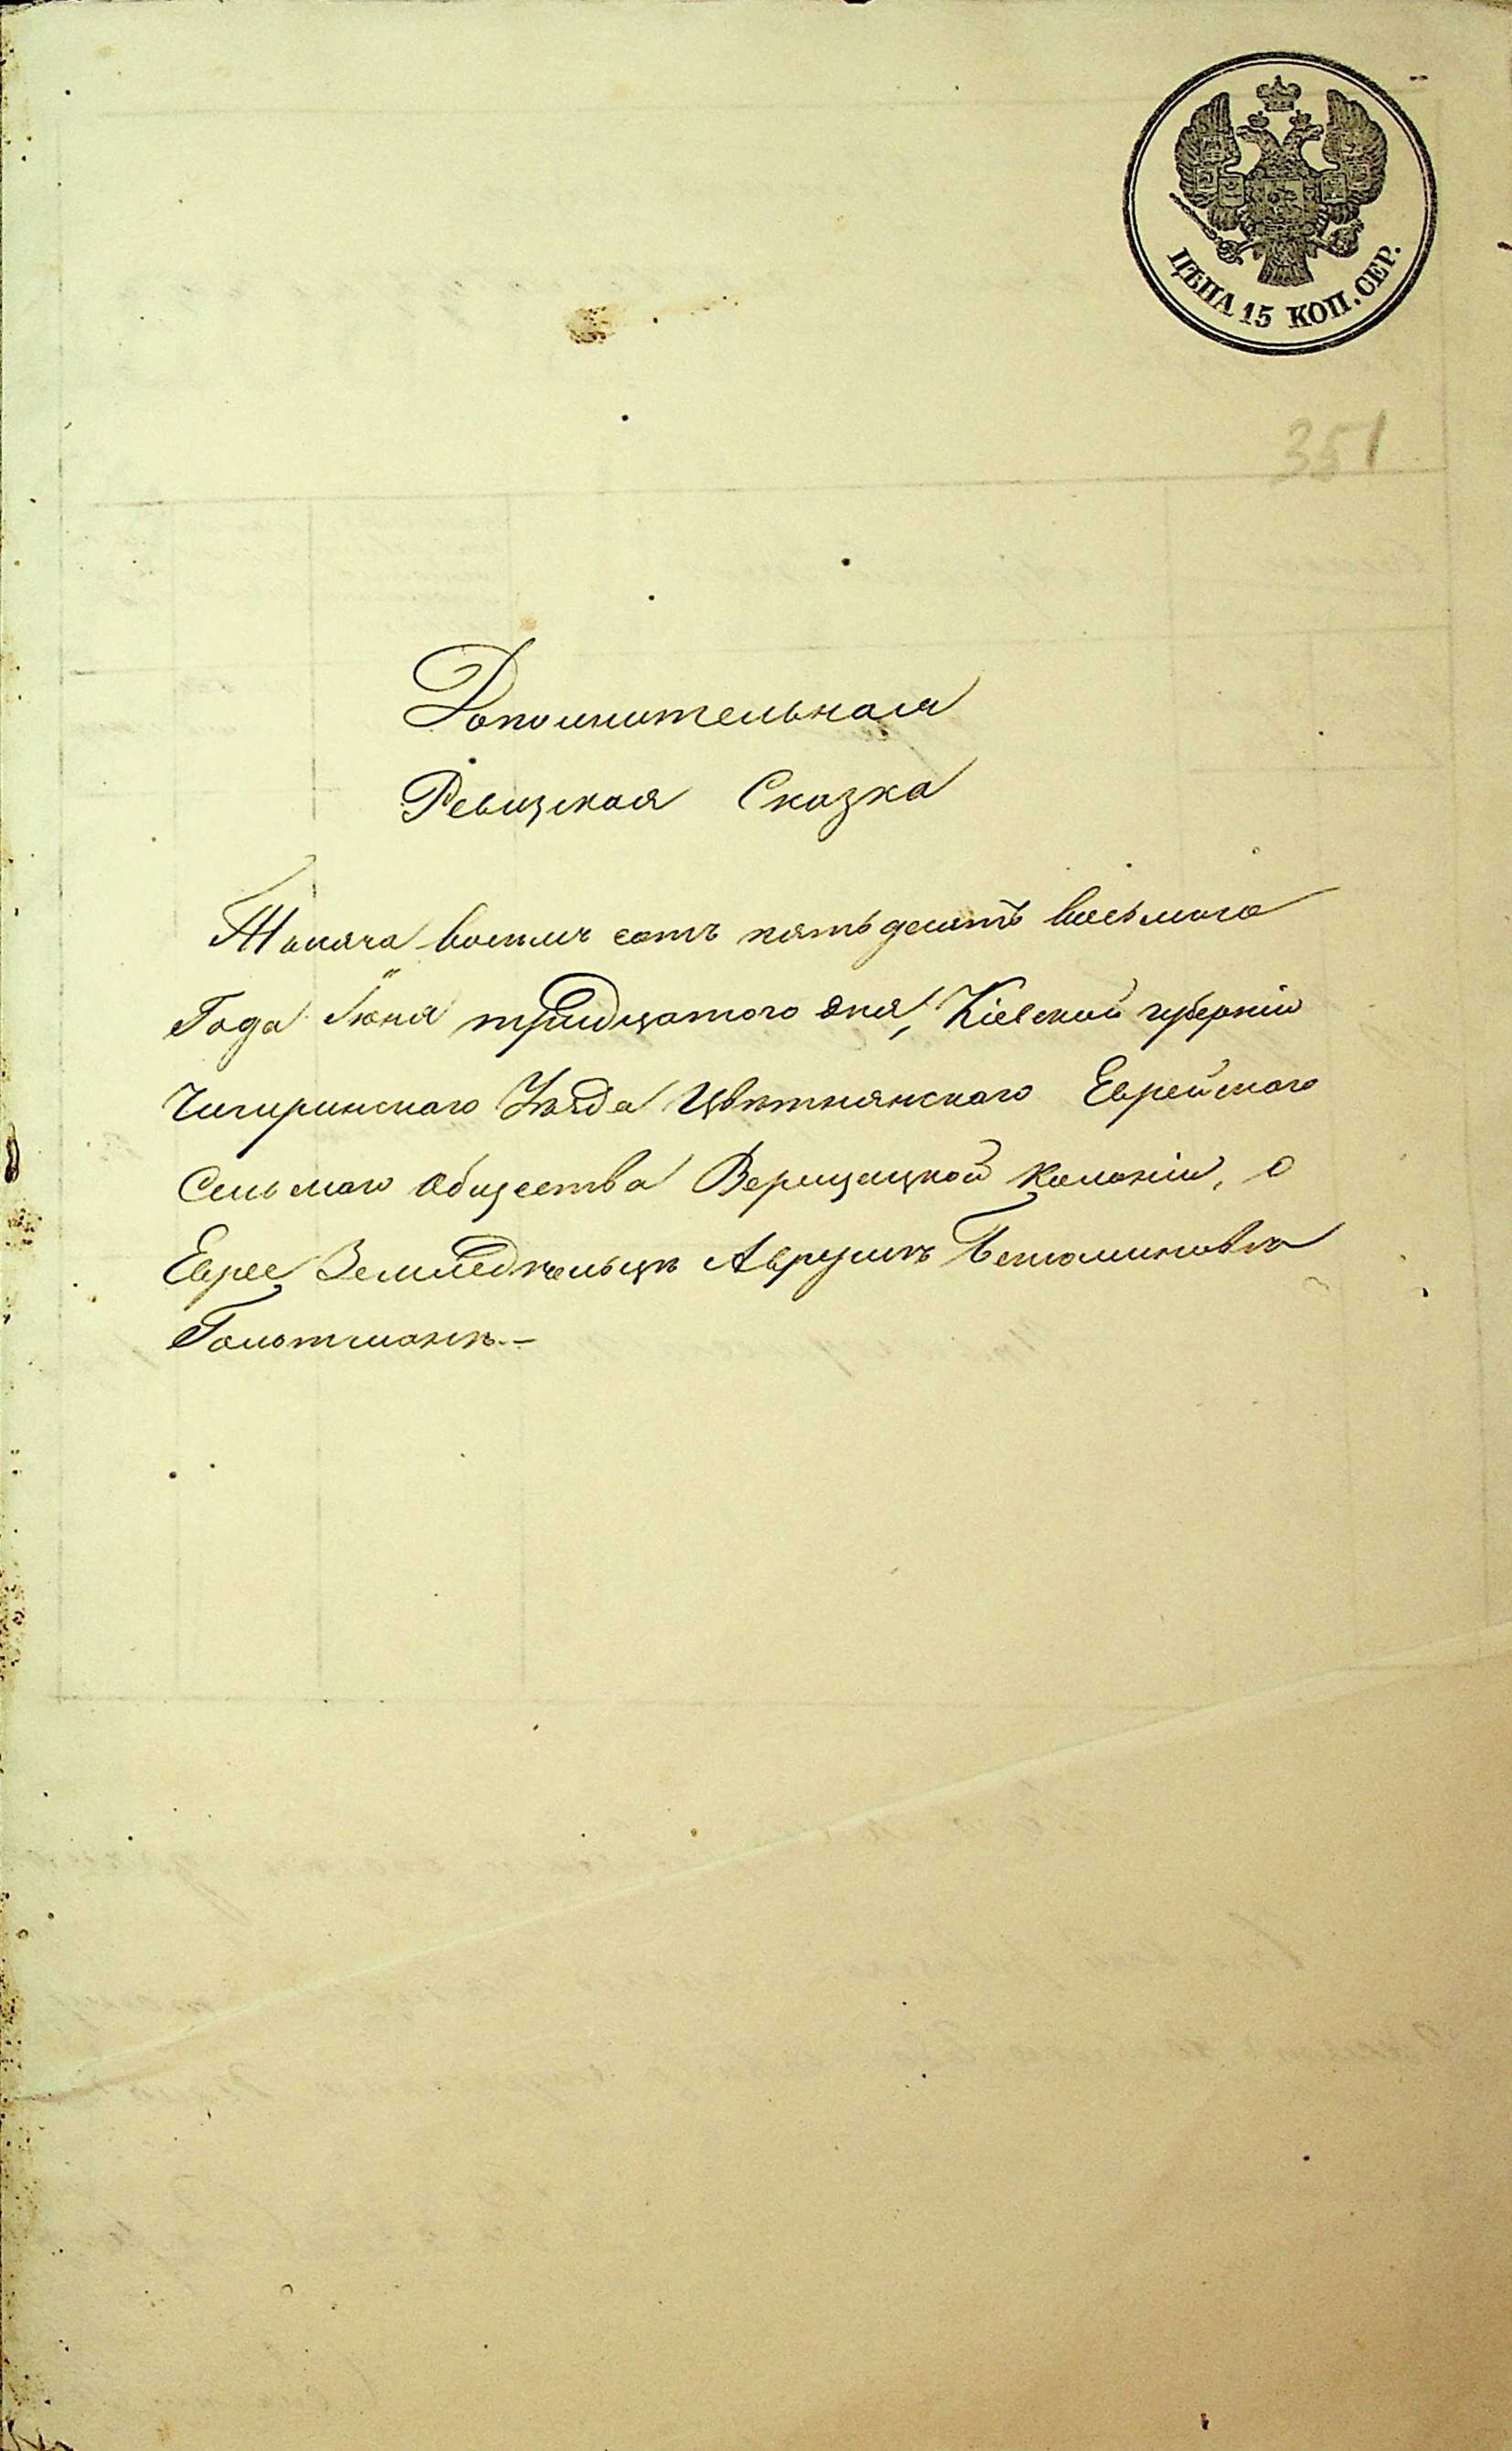 ЦѢНА 15 КОП. СЕР.
351
Дополнительная
Ревизская Сказка
Тысяча восемь сотъ пятьдесятъ восьмого
Года Іюня тридцатого дня, Кіевской губерніи
Чигиринского Уѣзда Цвѣтнянского Еврейского
Сельского Общества Верещацкой Колоніи, о
Еврее Земледѣльцѣ Аврумѣ Беніоминовѣ